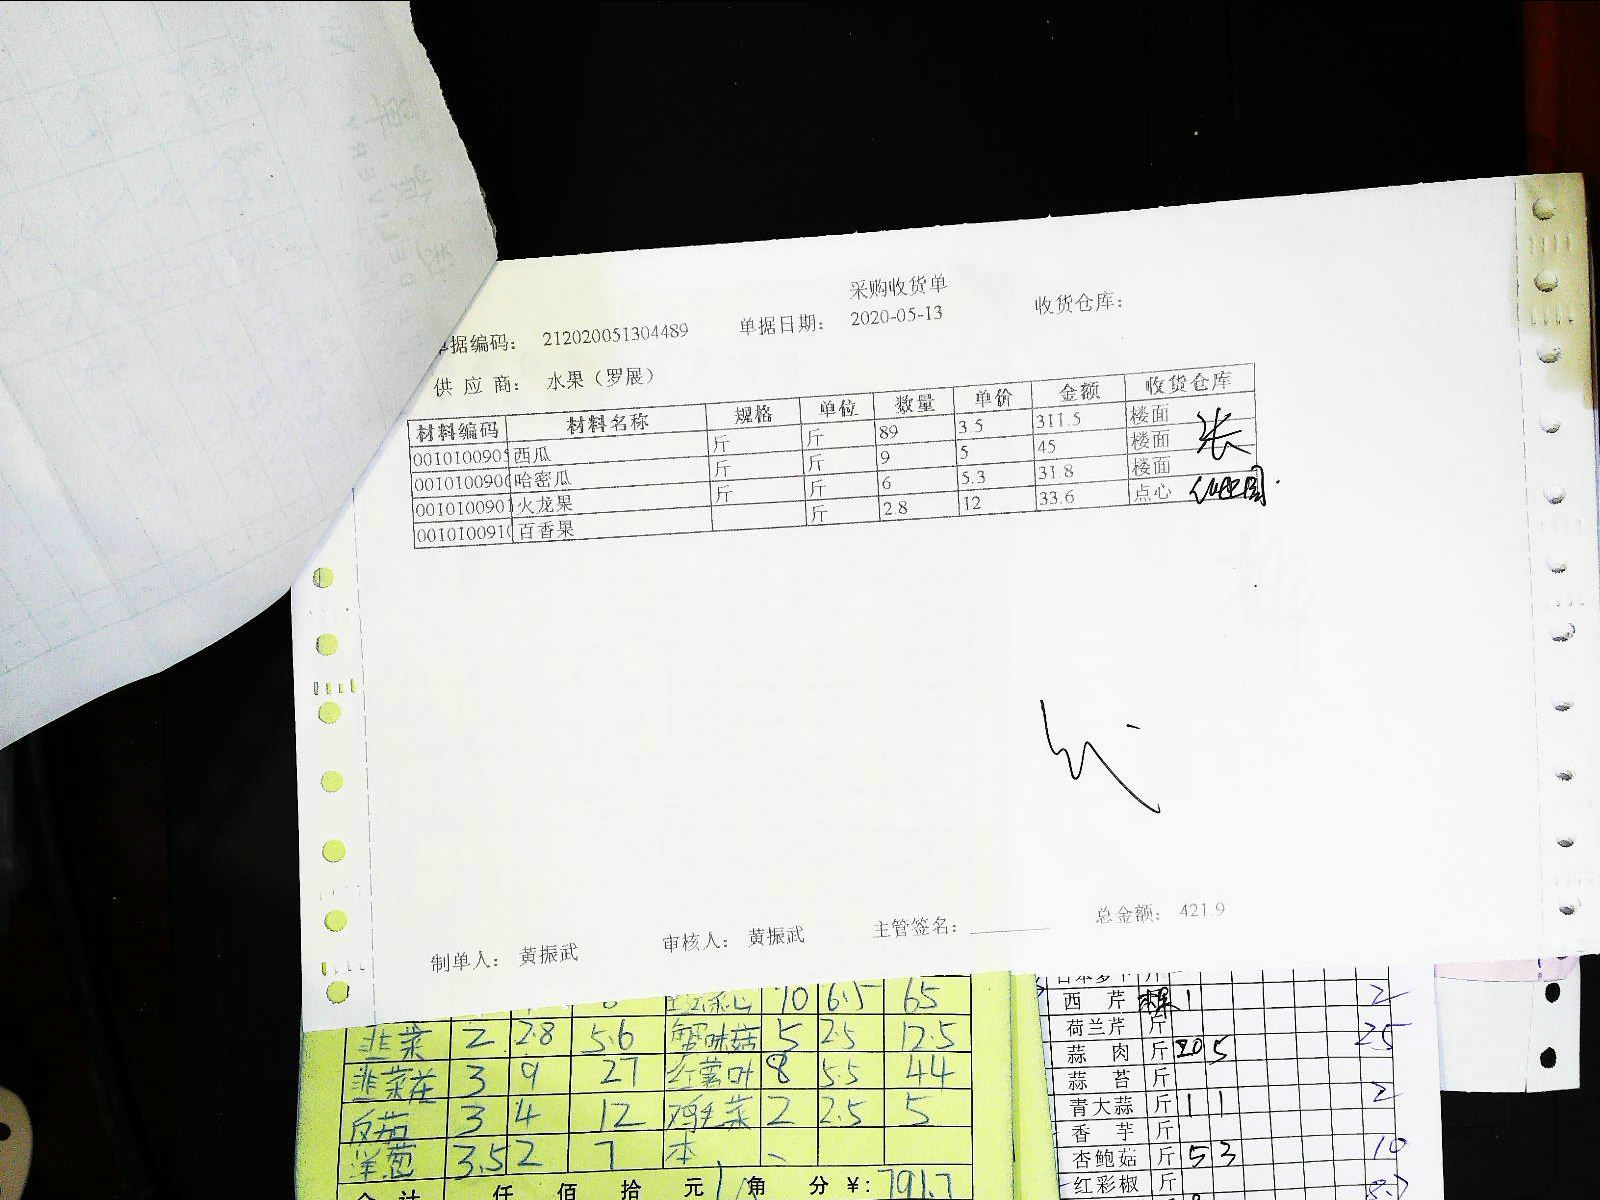 采购收货单
单据编码： 212020051304489 单据日期： 2020-05-13 收货仓库：
供 应 商： 水果（罗展）
材料编码 材料名称 规格 单位 数量 单价 金额 收货仓库
001010090 西瓜 斤 斤 89 3.5 311.5 楼面
001010090 哈密瓜 斤 斤 9 5 45 楼面
001010090 火龙果 斤 斤 6 5.3 31.8 楼面
001010091 百香果 斤 2.8 12 33.6 点心
张
制单人： 黄振武 审核人： 黄振武 主管签名： 总金额： 421.9
10 6.5 65
韭菜 2 2.8 5.6 蟹味菇 5 2.5 12.5
韭菜花 3 9 27 红薯叶 8 5.5 44
反茄 3 4 12 鸡毛菜 2 2.5 5
洋葱 3.5 2 7 本
合 计 仟 佰 拾 元 角 分 ¥: 791.7
西 芹 1 2
荷兰芹 斤
蒜 肉 斤 20 5 25
蒜 苔 斤
青大蒜 斤 1 1 2
香 芋 斤
杏鲍菇 斤 5 3 10
红彩椒 斤